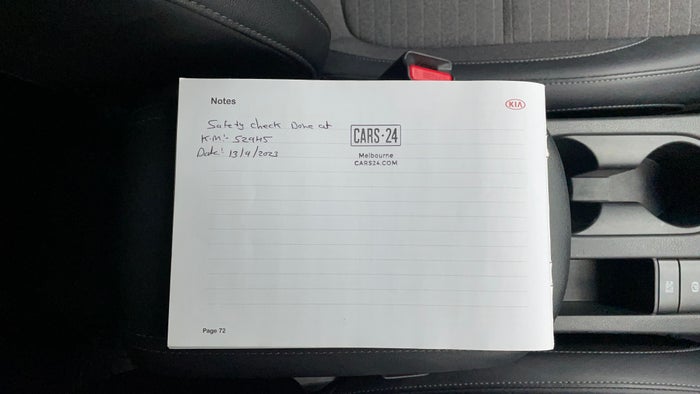 Notes
KIA
Safety check Done at
K.M:- 52945
Date:- 13/9/2023
CARS·24
Melbourne
CARS24.COM
Page 72